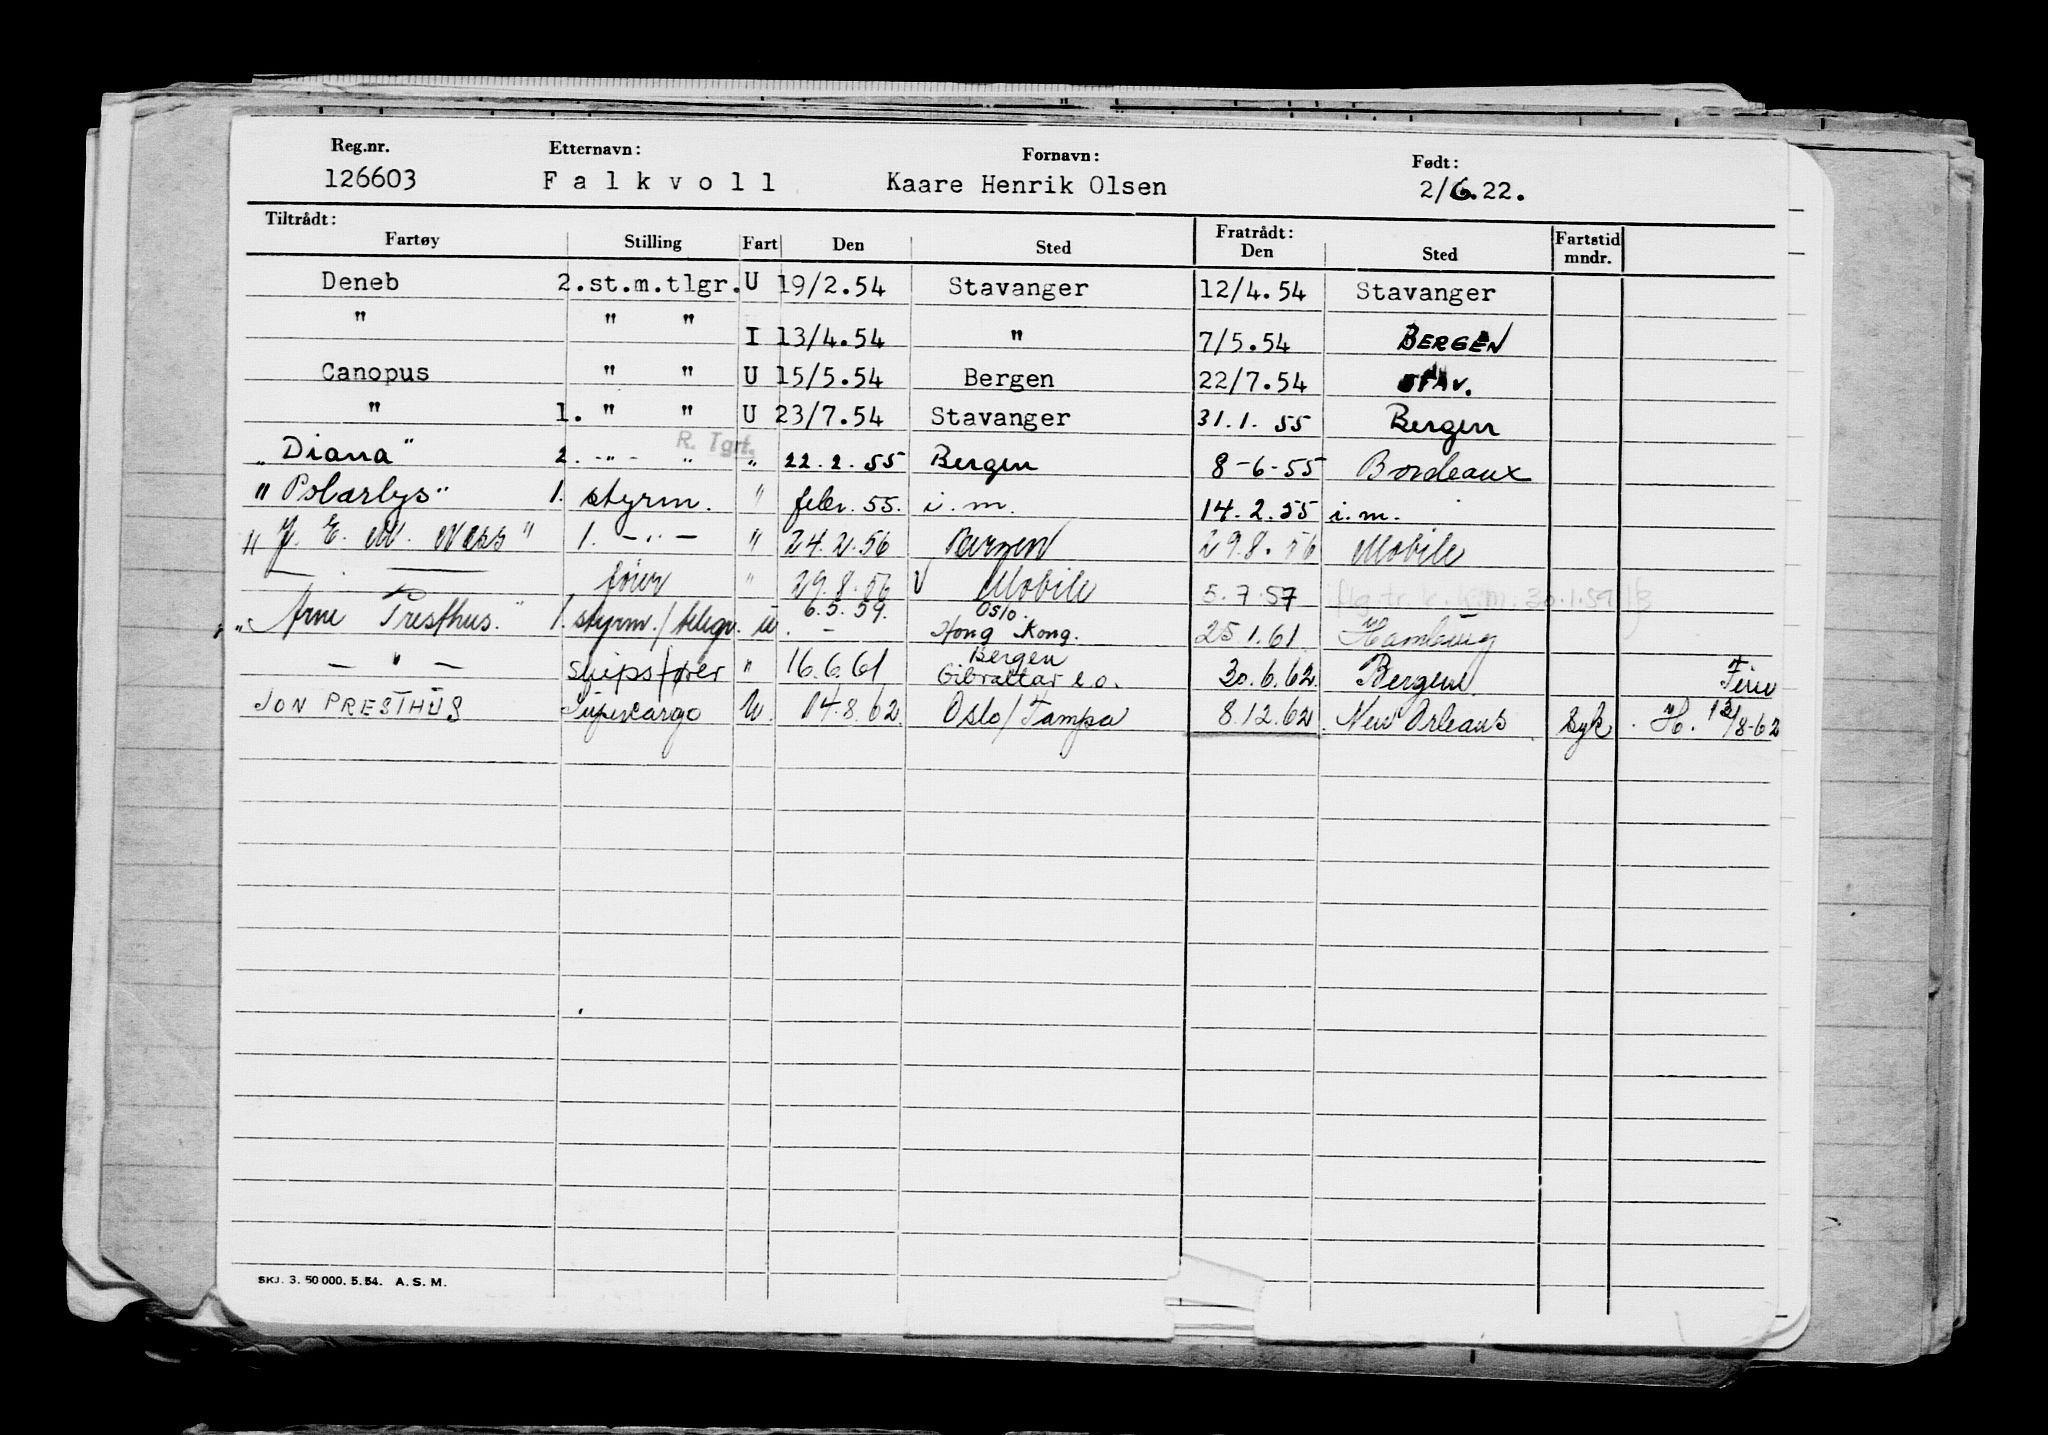 Reg.nr. Etternavn: Fornavn: Født:
126603 Falkvoll Kaare Henrik Olsen 2/6.22.
Tiltrådt: Fratrådt:
Fartøy Stilling Fart Den Sted Den Sted Fartstid mndr.
Deneb 2.st.m.tlgr. U 19/2.54 Stavanger 12/4.54 Stavanger
" " " I 13/4.54 " 7/5.54 BERGEN
Canopus " " U 15/5.54 Bergen 22/7.54 STAV.
" 1. " " U 23/7.54 Stavanger 31.1.55 Bergen
R. Tgrt.
"Diana" 2. -"- " " 22.2.55 Bergen 8-6-55 Bordeaux
"Polarlys" 1. styrm. " febr. 55. i.m. 14.2.55 i.m.
"J. E. M. Næss" 1. -"- " 24.2.56 Bergen 29.8.56 Mobile
— " — fører " 29.8.56 Mobile 5.7.57 30.1.59
"Arne Presthus." 1. styrm./telegr. U. 6.5.59. Oslo. Hong Kong. 25.1.61. Hamburg
— " — Skipsfører " 16.6.61 Bergen Gibraltar e.o. 30.6.62. Bergen Ferie
JON PRESTHUS Supercargo U. 04.8.62 Oslo/Tampa 8.12.62 New Orleans Syk. H. 13/8-62
SKJ. 3. 50 000. 5. 54. A. S. M.